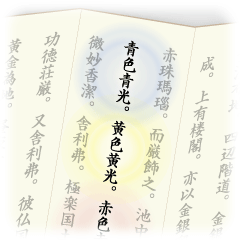 四辺階道。金銀
成。上有楼閣。亦以金銀
赤珠瑪瑙。而厳飾之。池中
青色青光。黄色黄光。赤色
微妙香潔。舎利弗。極楽国土
功徳荘厳。又舎利弗。彼仏国
黄金為地。